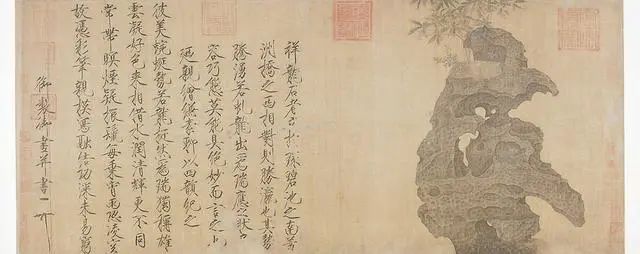 祥龍石者立於環碧池之南芳
洲橋之西相對則勝瀛也其勢
騰湧若虯龍出為瑞應之狀奇
容巧態莫能具絕妙而言之也
廼親繪縑素聊以四韻紀之
彼美蜿蜒勢若龍挺然為瑞獨稱雄
雲凝好色來相借水潤清輝更不同
常帶暝煙疑振鬣每乘宵雨恐凌空
故憑彩筆親模寫融結功深未易窮
御製御畫并書